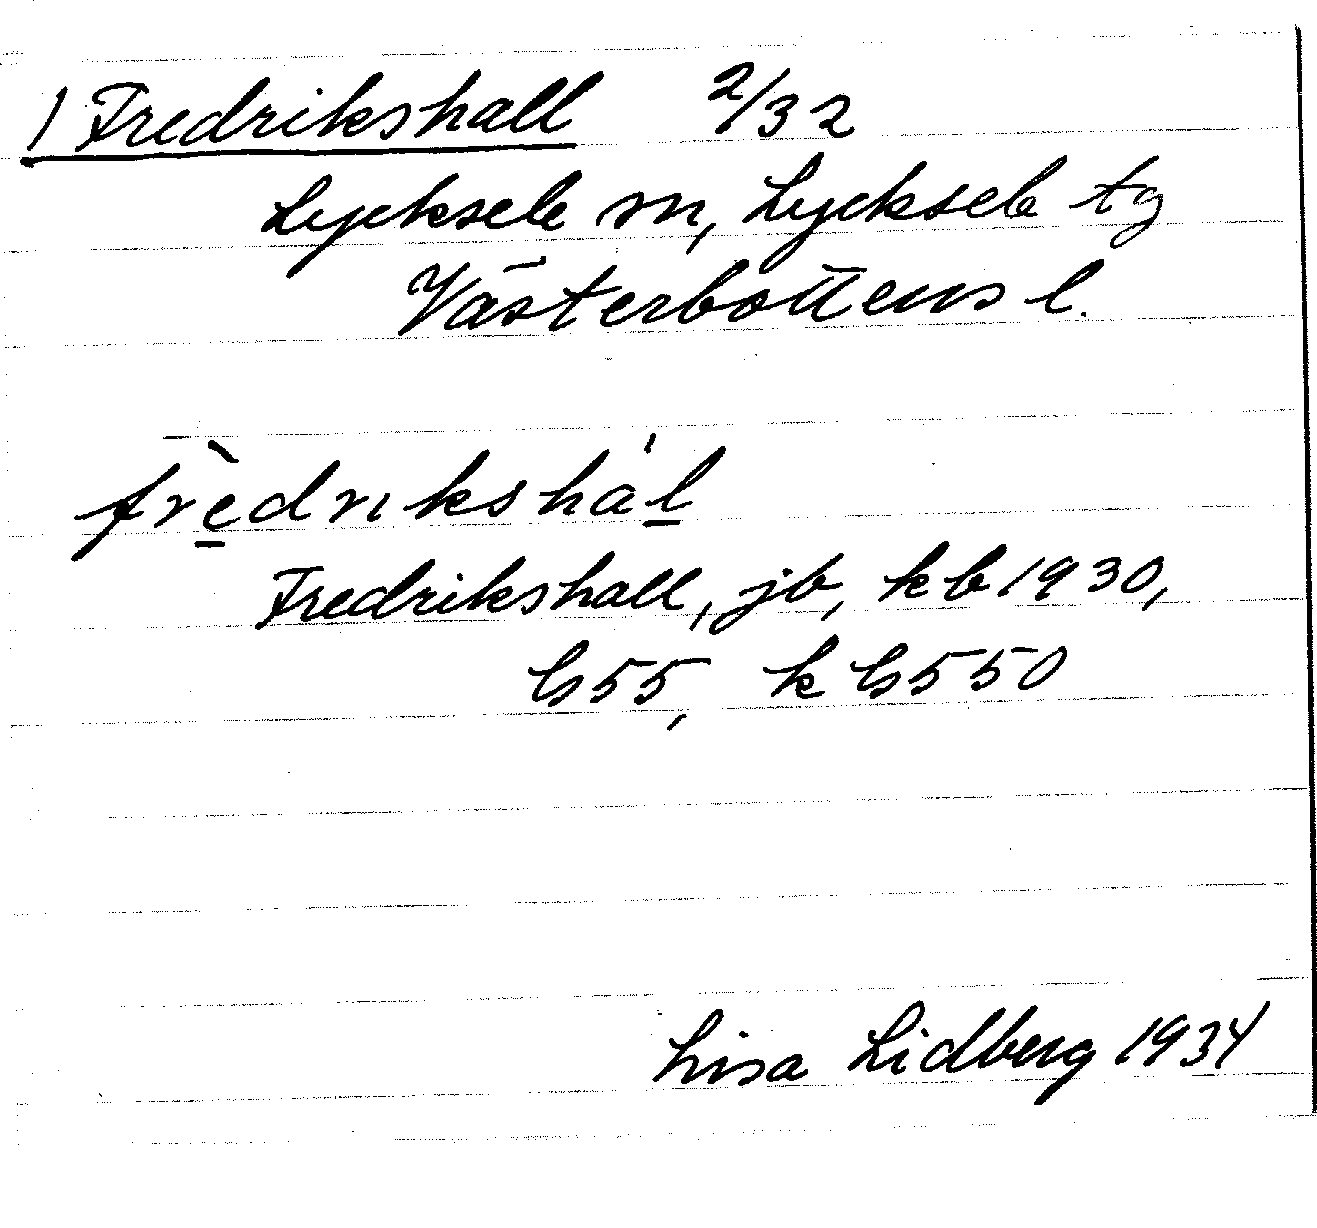 1 Fredrikshall 2/32
Lycksele sn, Lycksele tg
Västerbottens l.
frè̱driksháḻ
Fredrikshall, jb, kb 1930,
Gs55, k Gs550
Lisa Lidberg 1934